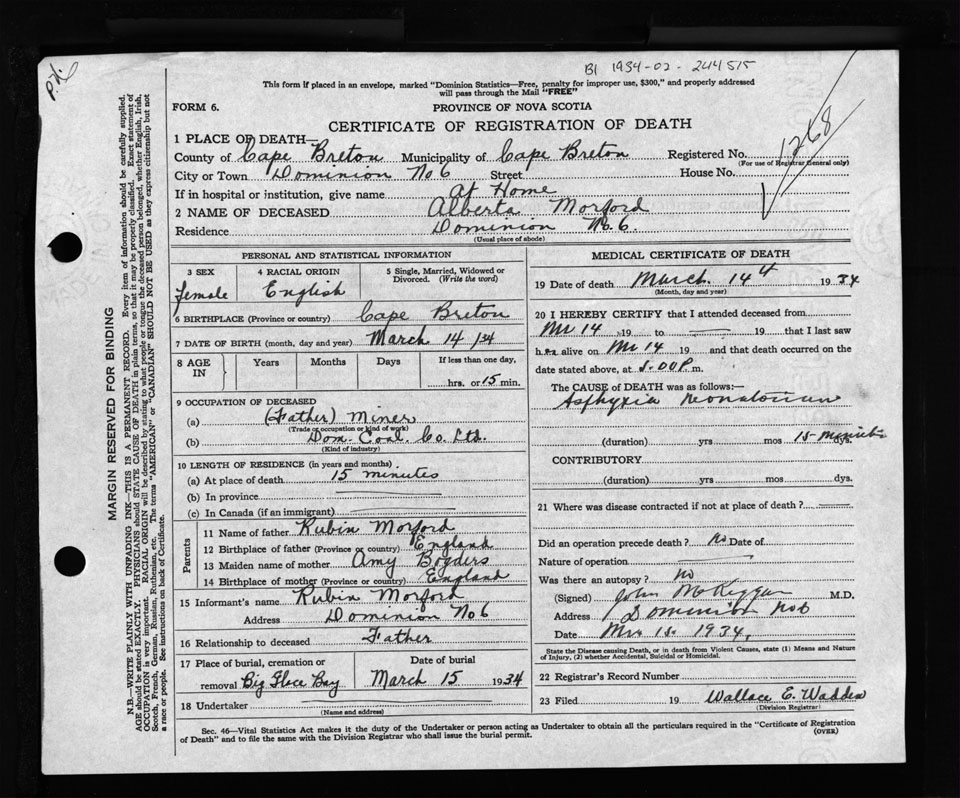 P.V.
BI 1934-02-244515
This form if placed in an envelope, marked "Dominion Statistics—Free, penalty for improper use, $300," and properly addressed
will pass through the Mail "FREE"
FORM 6.
PROVINCE OF NOVA SCOTIA
CERTIFICATE OF REGISTRATION OF DEATH
1268
1 PLACE OF DEATH—
County of Cape Breton Municipality of Cape Breton Registered No.
(For use of Registrar General only)
City or Town Dominion No 6 Street House No.
If in hospital or institution, give name At Home
2 NAME OF DECEASED Alberta Morford
Residence Dominion No. 6.
(Usual place of abode)
PERSONAL AND STATISTICAL INFORMATION
3 SEX 4 RACIAL ORIGIN 5 Single, Married, Widowed or Divorced. (Write the word)
female English
6 BIRTHPLACE (Province or country) Cape Breton
7 DATE OF BIRTH (month, day and year) March 14 /34
8 AGE IN Years Months Days If less than one day,
hrs. or 15 min.
9 OCCUPATION OF DECEASED
(a) (Father) Miner
(Trade or occupation or kind of work)
(b) Dom. Coal Co. Ltd.
(Kind of industry)
10 LENGTH OF RESIDENCE (in years and months)
(a) At place of death 15 minutes
(b) In province
(c) In Canada (if an immigrant)
Parents
11 Name of father Rubin Morford
12 Birthplace of father (Province or country) England
13 Maiden name of mother Amy Bogders
14 Birthplace of mother (Province or country) England
15 Informant's name Rubin Morford
Address Dominion No 6
16 Relationship to deceased Father
17 Place of burial, cremation or removal Big Glace Bay
Date of burial
March 15 1934
18 Undertaker
(Name and address)
MEDICAL CERTIFICATE OF DEATH
19 Date of death March 14th 1934
(Month, day and year)
20 I HEREBY CERTIFY that I attended deceased from
Mr 14 19 to 19 that I last saw
h er alive on Mr 14 19 and that death occurred on the
date stated above, at 5.00 P. m.
The CAUSE of DEATH was as follows:—
Asphyxia Neonatorium
(duration) yrs mos 15 minutes dys.
CONTRIBUTORY
(duration) yrs mos dys.
21 Where was disease contracted if not at place of death?
Did an operation precede death? No Date of
Nature of operation
Was there an autopsy? no
(Signed) John McKiggan M.D.
Address Dominion No 6
Date Mr. 15. 1934.
State the Disease causing Death, or in death from Violent Causes, state (1) Means and Nature
of Injury, (2) whether Accidental, Suicidal or Homicidal.
22 Registrar's Record Number
23 Filed 19 Wallace E. Wadden
(Division Registrar)
Sec. 46—Vital Statistics Act makes it the duty of the Undertaker or person acting as Undertaker to obtain all the particulars required in the "Certificate of Registration
of Death" and to file the same with the Division Registrar who shall issue the burial permit.
(OVER)
MARGIN RESERVED FOR BINDING
N.B.—WRITE PLAINLY WITH UNFADING INK—THIS IS A PERMANENT RECORD. Every item of information should be carefully supplied.
AGE should be stated EXACTLY. PHYSICIANS should STATE CAUSE OF DEATH in plain terms, so that it may be properly classified. Exact statement of
OCCUPATION is very important. RACIAL ORIGIN will be described by stating to what people or tongue the deceased person belonged, whether English, Irish,
Scotch, French, German, Russian, Ruthenian, etc. The terms "AMERICAN" or "CANADIAN" SHOULD NOT BE USED as they express citizenship but not
a race or people. See instructions on back of Certificate.